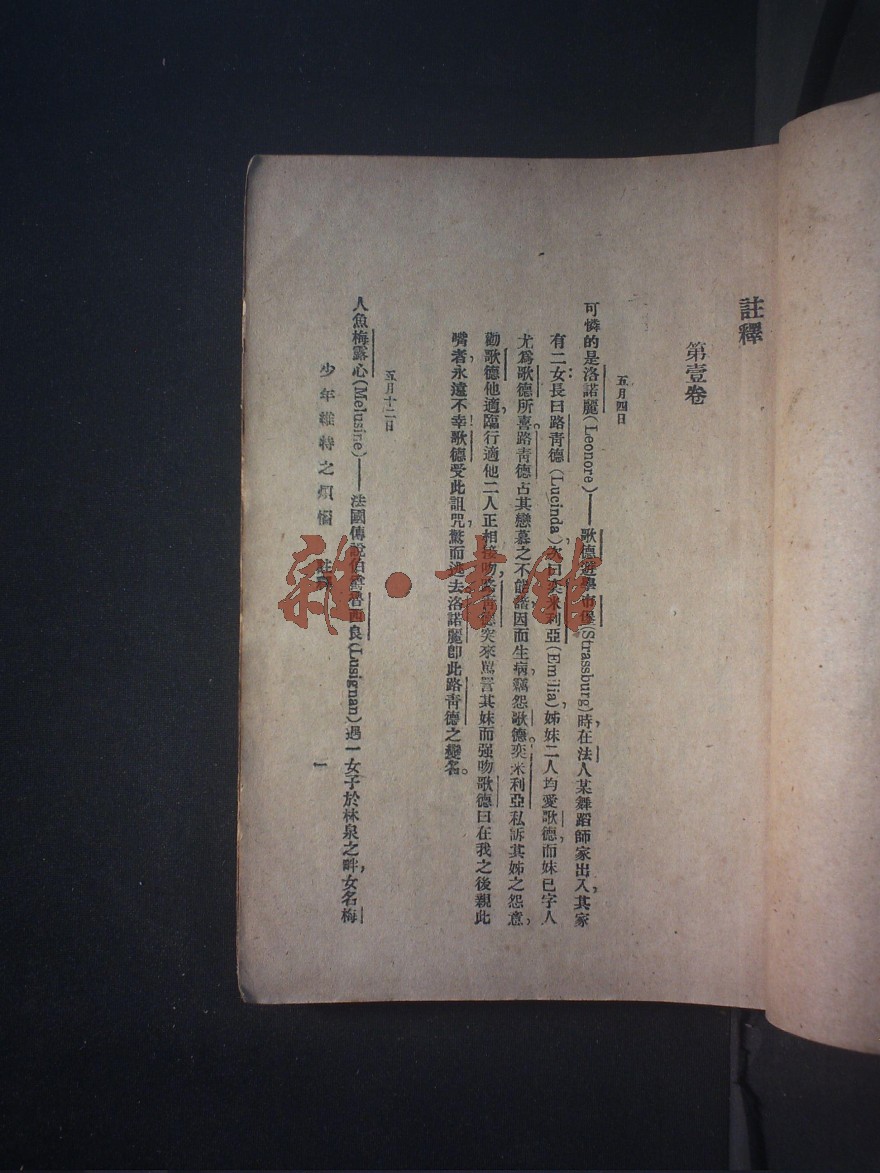 註釋
第壹卷
五月四日
可憐的是洛諾麗(Leonore)——歌德遊學市堡(Strassburg)時,在法人某舞蹈師家出入,其家
有二女:長曰路靑德(Lucinda),次曰奕米利亞(Emilia),姊妹二人均愛歌德,而妹已字人
尤爲歌德所喜。路靑德占其戀慕之不能諧因而生病,竊怨歌德。奕米利亞私訴其姊之怨意,
勸歌德他適,臨行適他二人正相接吻,路靑德突來罵詈其妹而强吻歌德曰在我之後親此
嘴者,永遠不幸!歌德受此詛咒,驚而逃去洛諾麗卽此路靑德之變名。
五月十二日
人魚梅露心(Melusine)——法國傳說伯爵魯西良(Lusignan)遇一女子於林泉之畔,女名梅
少年維特之煩惱 註釋 一
雜·書館